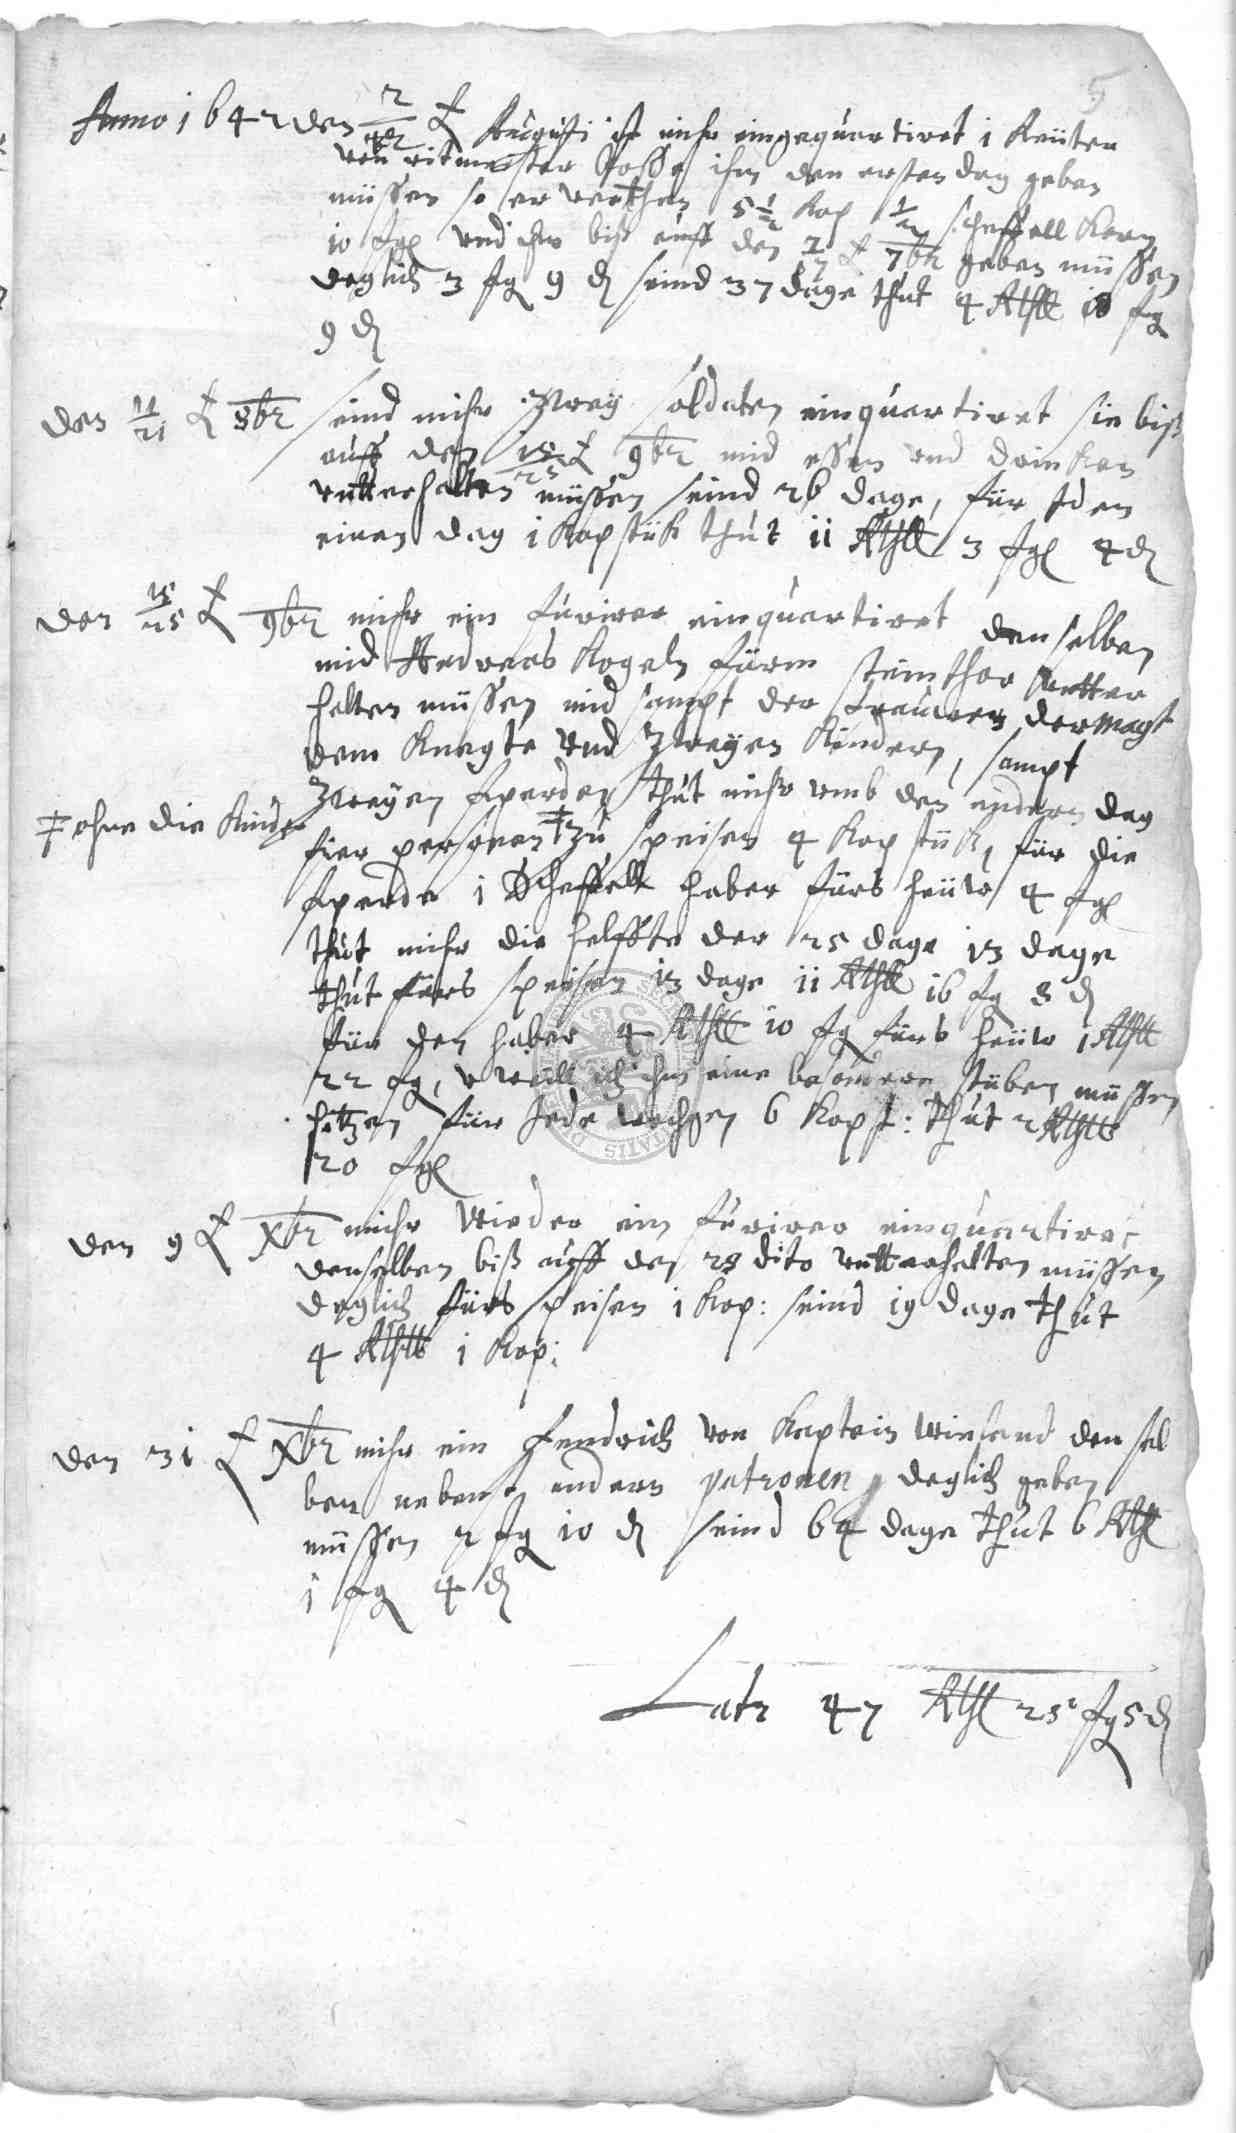 5
Anno 1642 den 2/12 Augusti ist mihr eingequartiret 1 Reüter
von ritmester Rosse ihm den ersten dag geben
müssen so er verthan 5 1/2 Kop 1/2 scheffell Korn
10 sgl und ihm biß auff den 7/17 7br geben müssen
deglich 3 sg 9 d seind 37 dage thut 4 Rthll 18 sg
9 d
den 11/21 8br seind mihr Zweÿ soldaten einquartiret sie biß
auff den 15/25 9br mid essen und drinken
unterhalten müssen seind 26 dage, für Iden
einen dag 1 Kopstük thut 11 Rthll 3 sgl 4 d
den 15/25 9br mihr ein furirer einquartiret denselben
mid Andreas Kogeln fürm steinthor unter
halten müssen mid sampt der frauwen der Magt
dem Knegte und Zweÿen Kindern, sampt
Zweÿen pferden thut mihr umb den andern dag
‡ ohne die Kinder
fier personen ‡ zu speisen 4 Kopstük, für die
pferde 1 Scheffell haber fürs heüw 4 sgl
thut mihr die helffte der 25 dage 13 dage
thut fürs speisen 13 dage 11 Rthll 16 sg 8 d
für den haber 4 Rthll 10 sg fürs heüw 1 Rthll
22 sg, weill ich ihm eine besondere stuben müssen
hitzen für Jede wochen 6 Kopst: thut 2 Rthll
20 sgl
den 9 Xbr mihr wieder ein furirer einquartiret
denselben biß auff den 28 dito unterhalten müssen
deglich fürs speisen 1 Kop: seind 19 dage thut
4 Rthll 1 Kop:
den 31 Xbr mihr ein fendrich von Kaptein Wiesand den sel
ben nebenst andern patronen deglich geben
müssen 2 sg 10 d seind 64 dage thut 6 Rthl
1 sg 4 d
Latr 47 Rthl 25 sg 5 d